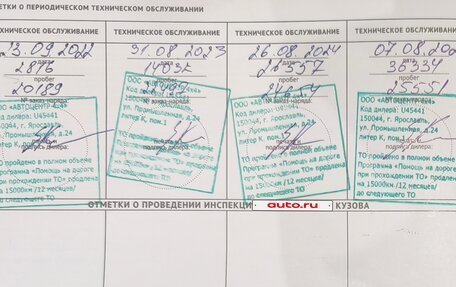 ТКИ О ПЕРИОДИЧЕСКОМ ТЕХНИЧЕСКОМ ОБСЛУЖИВАНИИ
ОБСЛУЖИВАНИЕ
ТЕХНИЧЕСКОЕ ОБСЛУЖИВАНИЕ
ТЕХНИЧЕСКОЕ ОБСЛУЖИВАНИЕ
ТЕХНИЧЕСКОЕ ОБСЛУЖИВАНИЕ
23.09.2022
дата
2876
пробег
20189
№ заказ-наряда:
ООО «АВТОЦЕНТР
Код дилера: U45441
150044, г. Ярославль,
ул. Промышленная, д.24
литер К, пом.1
ТО пройдено в полном объеме
Программа «Помощь на дороге
при прохождении ТО» продлена
на 15000км/12 месяцев/
до следующего ТО
31.08.2023
дата
пробег
Код дилера: U45441
150044, г. Ярославль,
ул. Промышленная, д.24
литер К, пом.1
подпись дилера:
ТО пройдено в полном объеме
Программа «Помощь на дороге
при прохождении ТО» продлена
на 15000км/12 месяцев/
до следующего ТО
26.08.2024
дата
26557
пробег
24654
ООО «АВТОЦЕНТР
Код дилера: U45441
150044, г. Ярославль,
ул. Промышленная, д.24
литер К, пом.1
подпись дилера:
ТО пройдено в полном объеме
Программа «Помощь на дороге
при прохождении ТО» продлена
на 15000км/12 месяцев/
до следующего ТО
07.08.202
дата
36334
пробег
25551
№ заказ-наряда:
ООО «АВТОЦЕНТР
Код дилера: U45441
150044, г. Ярославль,
ул. Промышленная, д.24
литер К, пом.1
подпись дилера:
ТО пройдено в полном объеме
Программа «Помощь на дороге
при прохождении ТО» продлена
на 15000км/12 месяцев/
до следующего ТО
ОТМЕТКИ О ПРОВЕДЕНИИ ИНСПЕКЦИ КУЗОВА
auto.ru